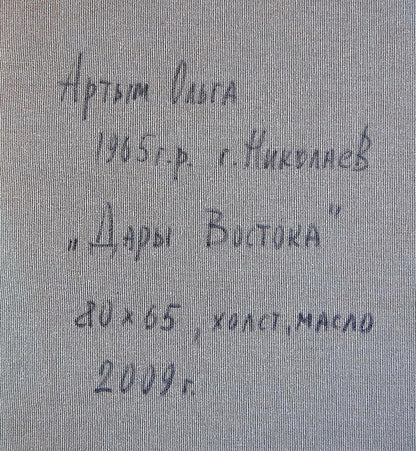 Артым Ольга
1965г.р. г. Николаев
„Дары Востока"
80×65, холст, масло
2009г.